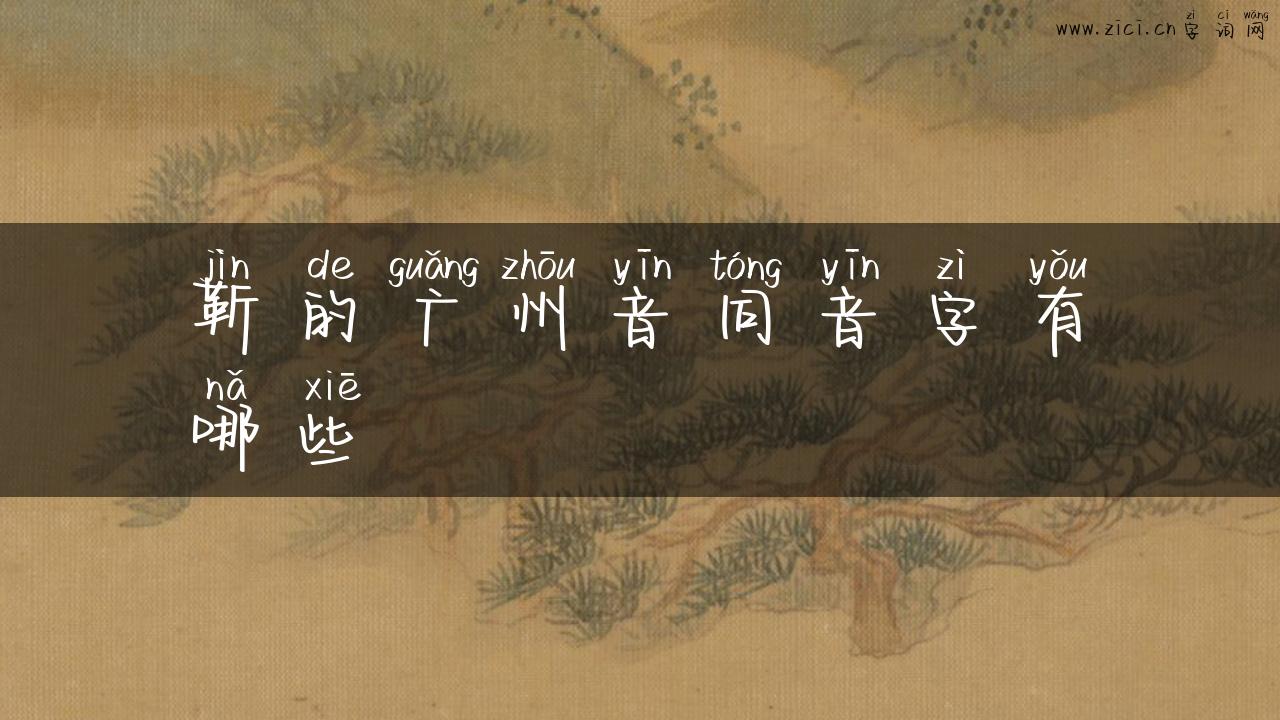 zì cí wǎng
www.zici.cn 字词网
jìn de guǎng zhōu yīn tóng yīn zì yǒu
靳的广州音同音字有
nǎ xiē
哪些